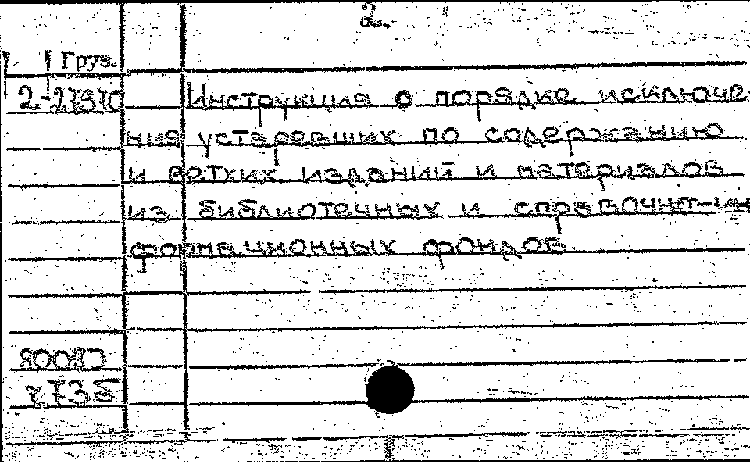 2.
Груз.
2-27970 Инструкция о порядке исключе
ния устаревших по содержанию
и ветхих изданий и материалов
из библиотечных и справочно-ин
формационных фондов
80080
к735